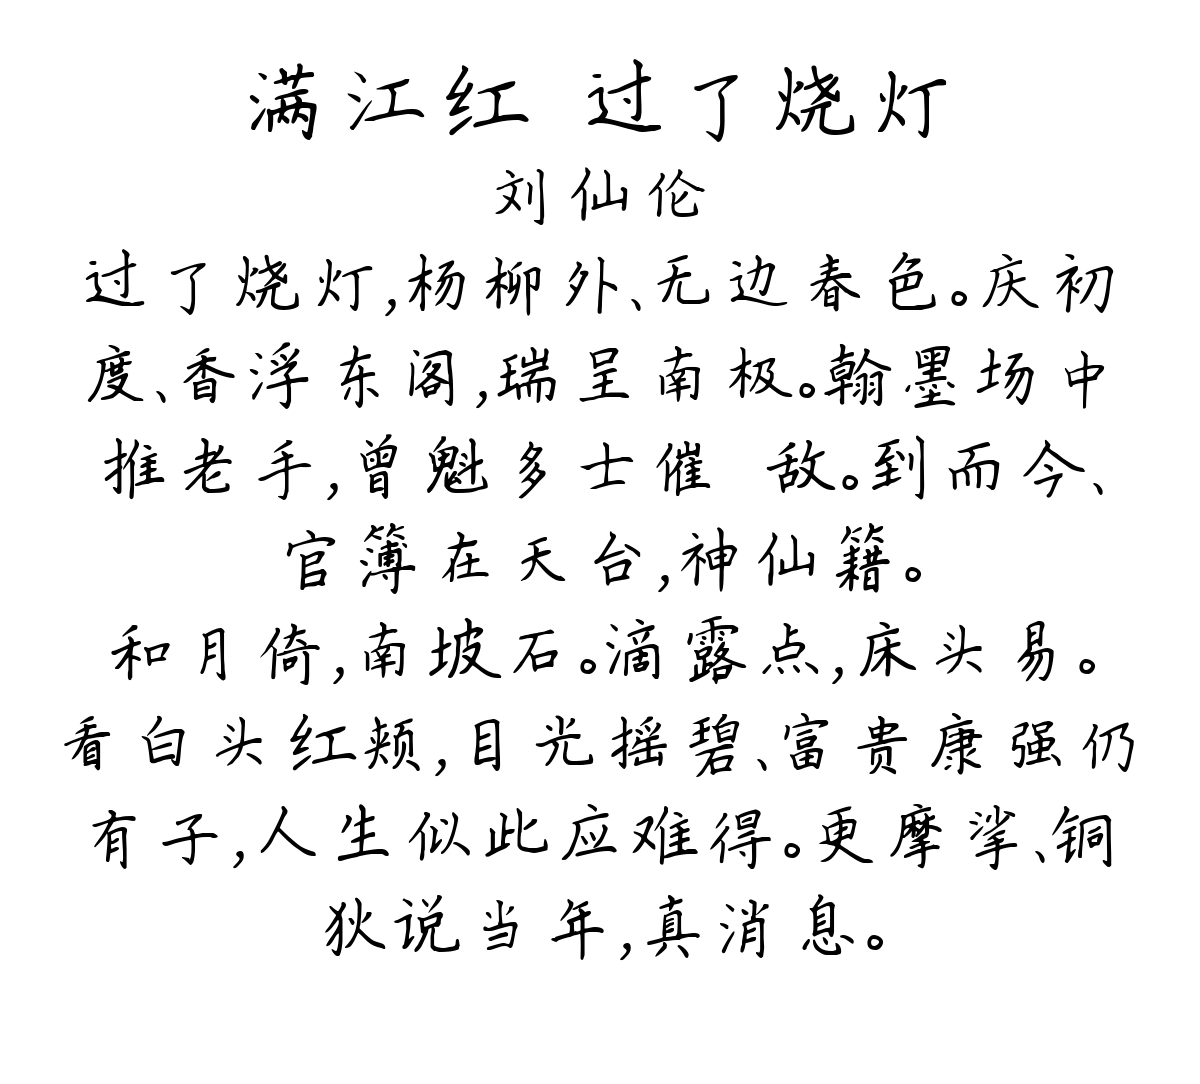 满江红 过了烧灯
刘仙伦
过了烧灯,杨柳外、无边春色。庆初
度、香浮东阁,瑞呈南极。翰墨场中
推老手,曾魁多士催 敌。到而今、
官簿在天台,神仙籍。
和月倚,南坡石。滴露点,床头易。
看白头红颊,目光摇碧、富贵康强仍
有子,人生似此应难得。更摩挲、铜
狄说当年,真消息。